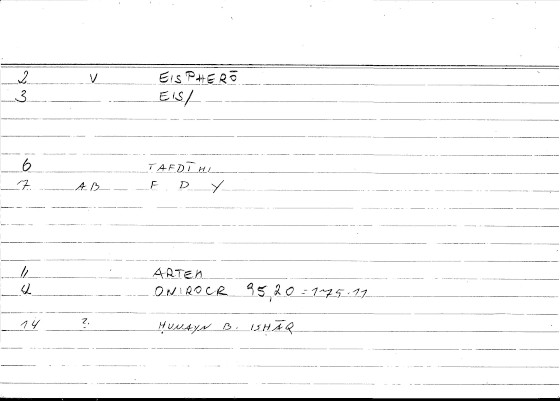 2 V EISPHERŌ
3 EIS/
6 TAFDĪHI
7 AB F D Y
11 ARTEM
12 ONIROCR 95,20 = 175.11
14 ? ḤUNAYN B. ISḤĀQ